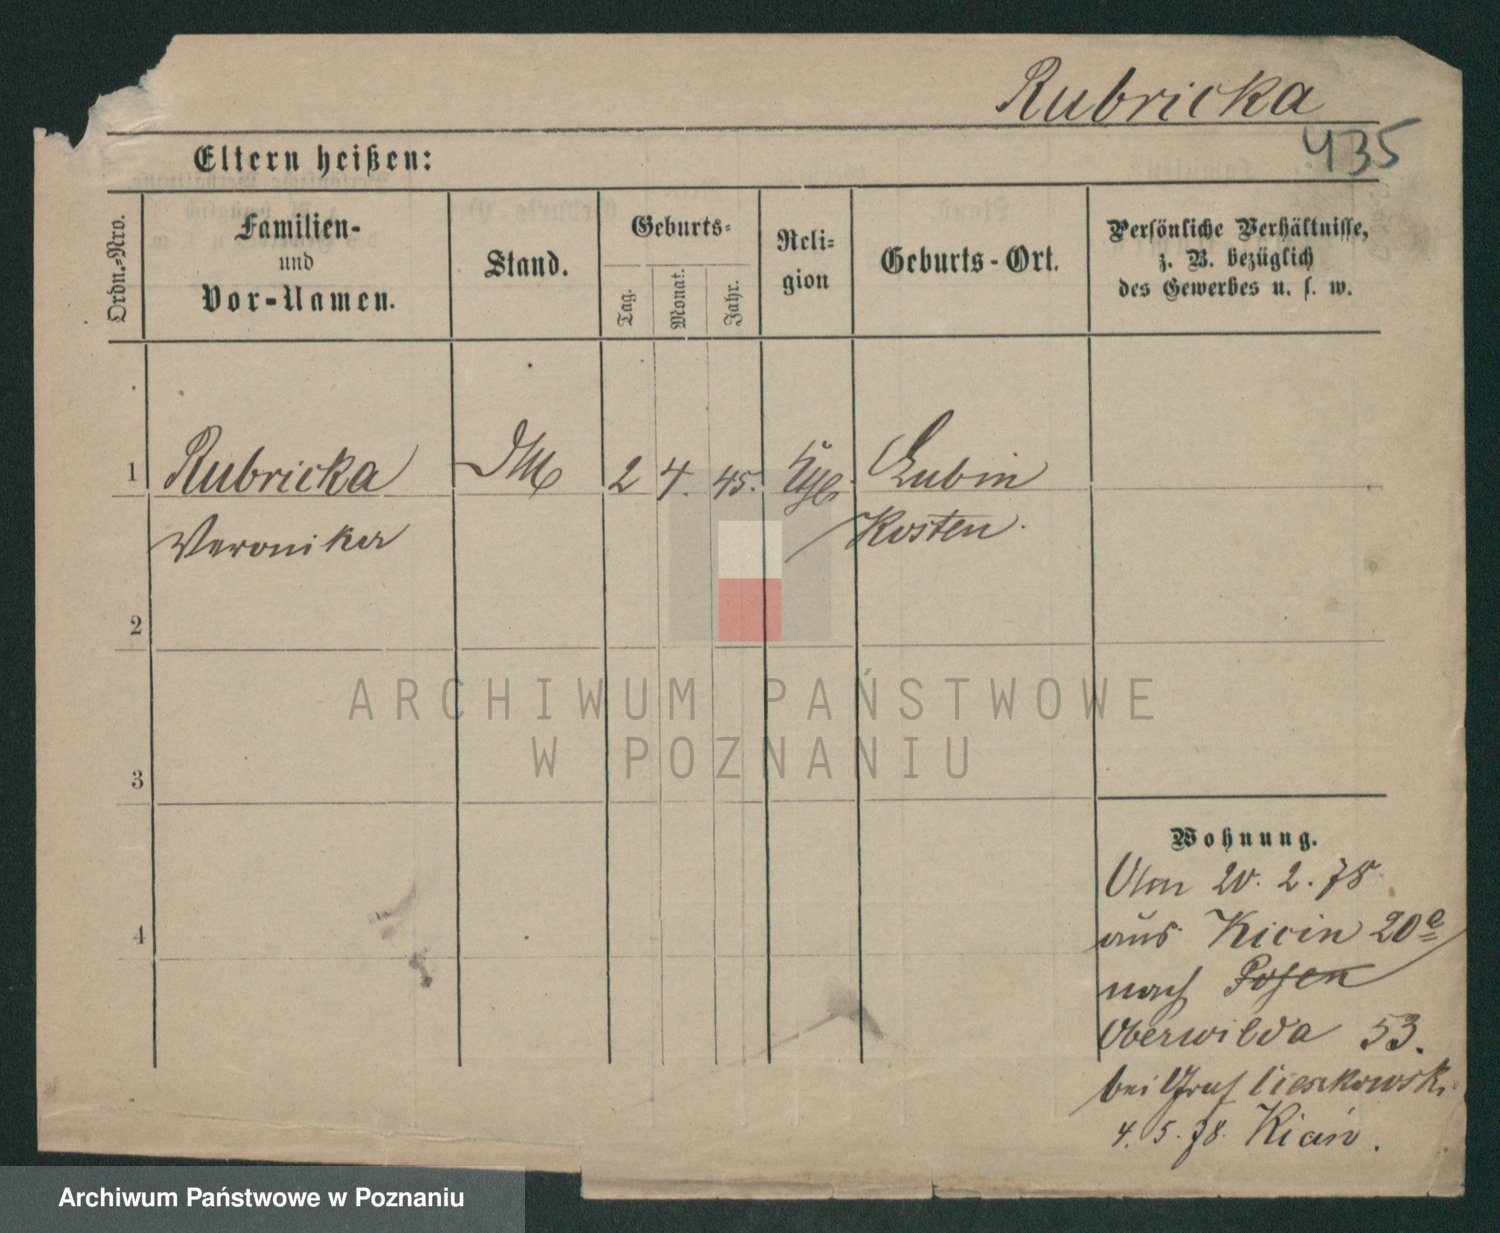 Rubricka
435
Eltern heißen:
Ordn.-Nro.
Familien-
und
Vor-Namen.
Stand.
Geburts-
Tag.
Monat.
Jahr.
Reli-
gion
Geburts-Ort.
Persönliche Verhältnisse,
z. B. bezüglich
des Gewerbes u. s. w.
1
Rubricka
DM
2
4.
45.
Lubin
Veronika
Kosten.
2
3
4
ARCHIWUM PAŃSTWOWE
W POZNANIU
Wohnung.
20. 2. 78
aus Kicin 20
nach Posen
Oberwilda 53.
bei Graf Cieszkowski
4. 5. 78. Kicin.
Archiwum Państwowe w Poznaniu